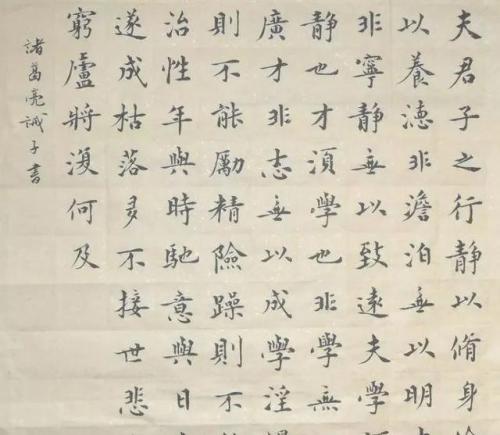 夫君子之行靜以脩身
以養德非澹泊無以明
非寧靜無以致遠夫學
靜也才須學也非學無
廣才非志無以成學淫
則不能勵精險躁則不
治性年與時馳意與日
遂成枯落多不接世悲
窮廬將復何及
諸葛亮誡子書